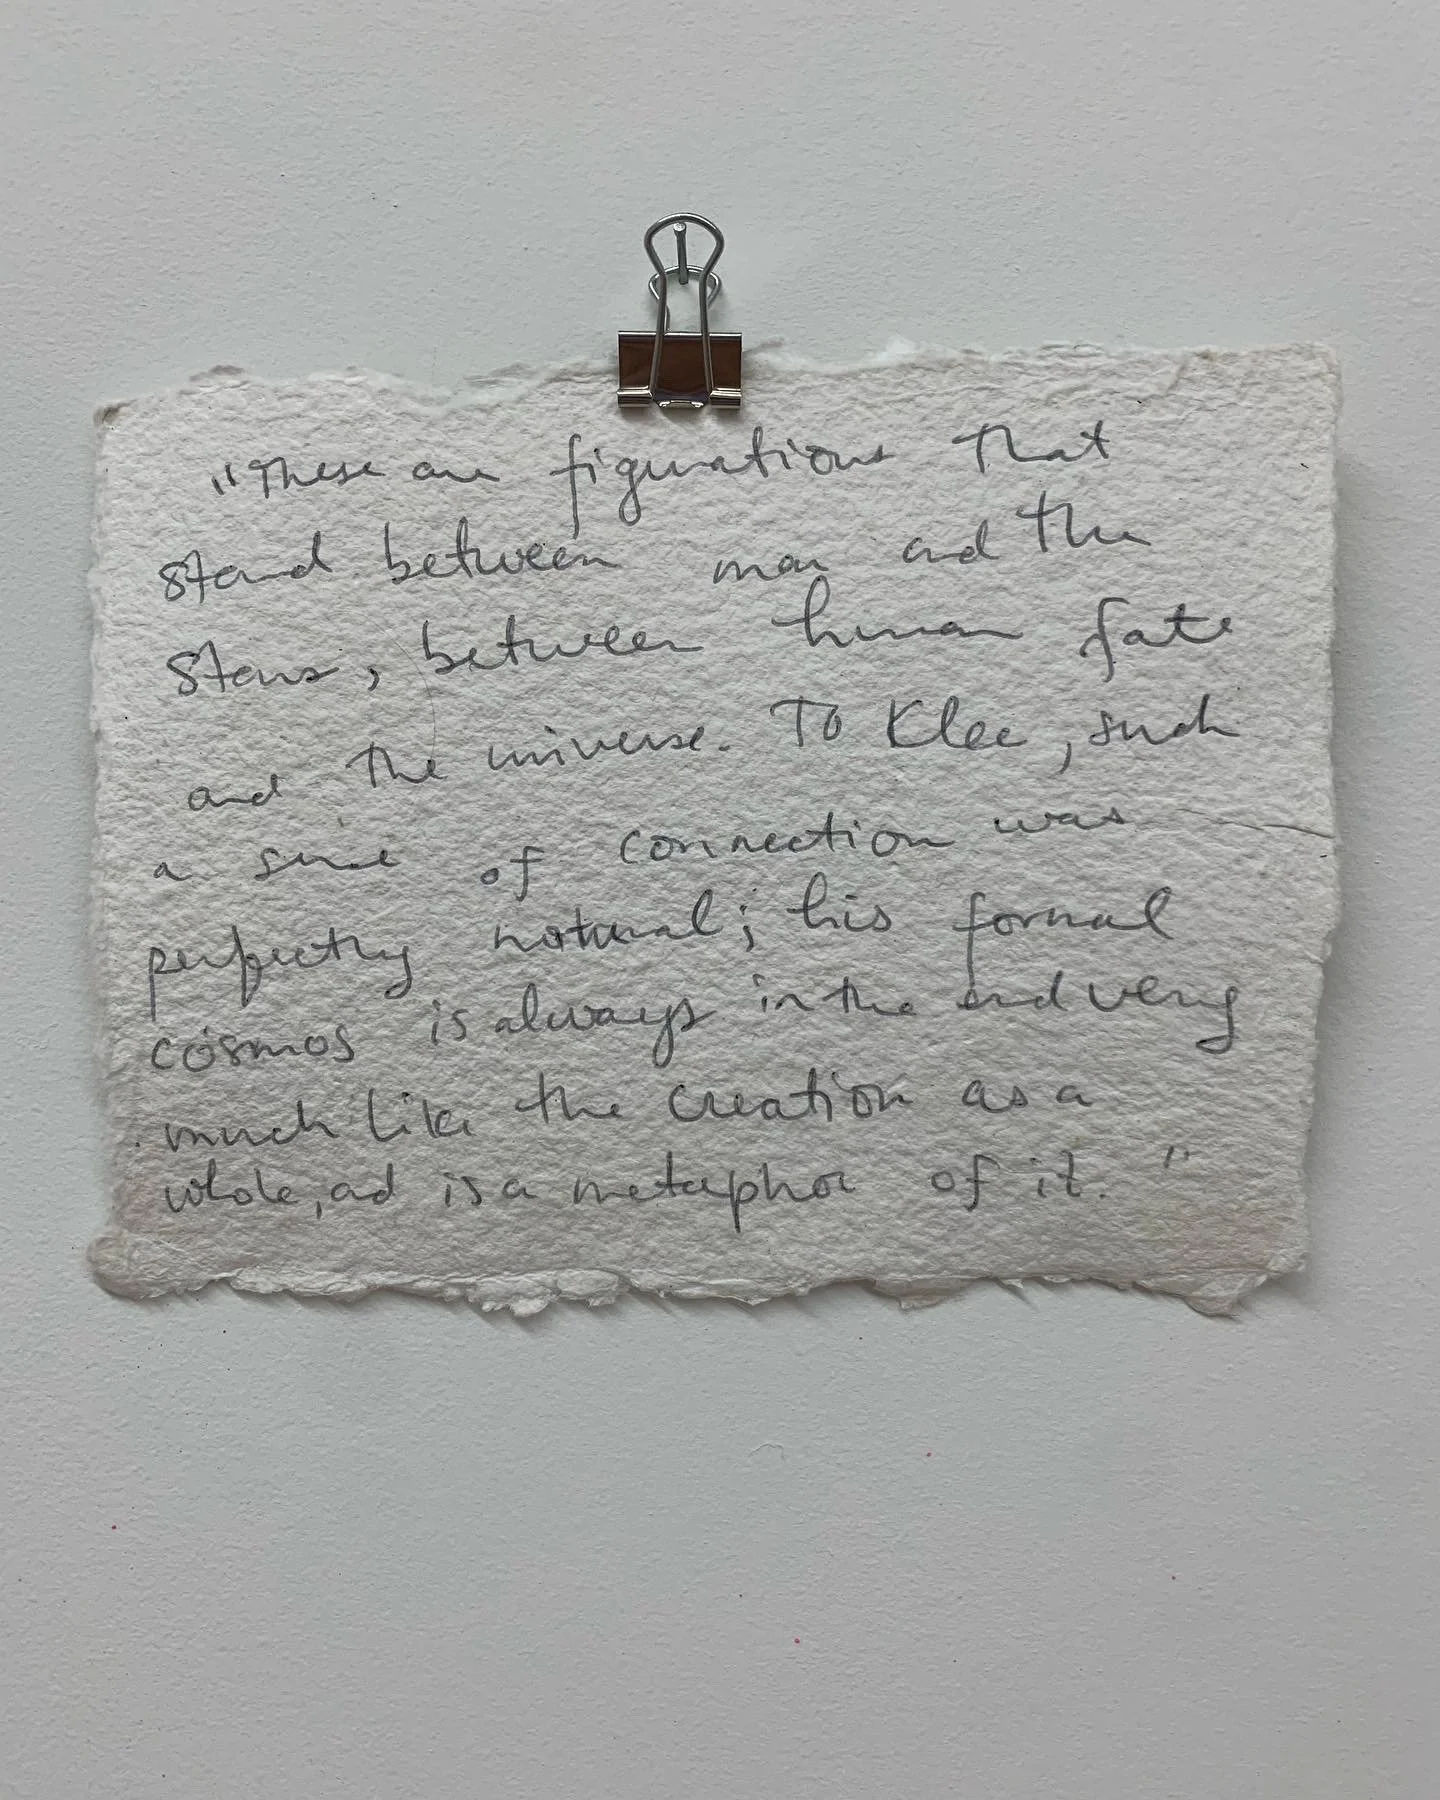 "These are figurations that
stand between man and the
stars, between human fate
and the universe. To Klee, such
a sense of connection was
perfectly natural; his formal
cosmos is always in the end very
much like the creation as a
whole, ad is a metaphor of it."